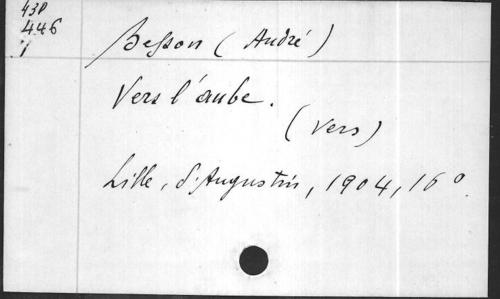 43P
446
1
Besson (André)
Vers l'aube.
(Vers)
Lille, d'Augustin, 1904, 16°